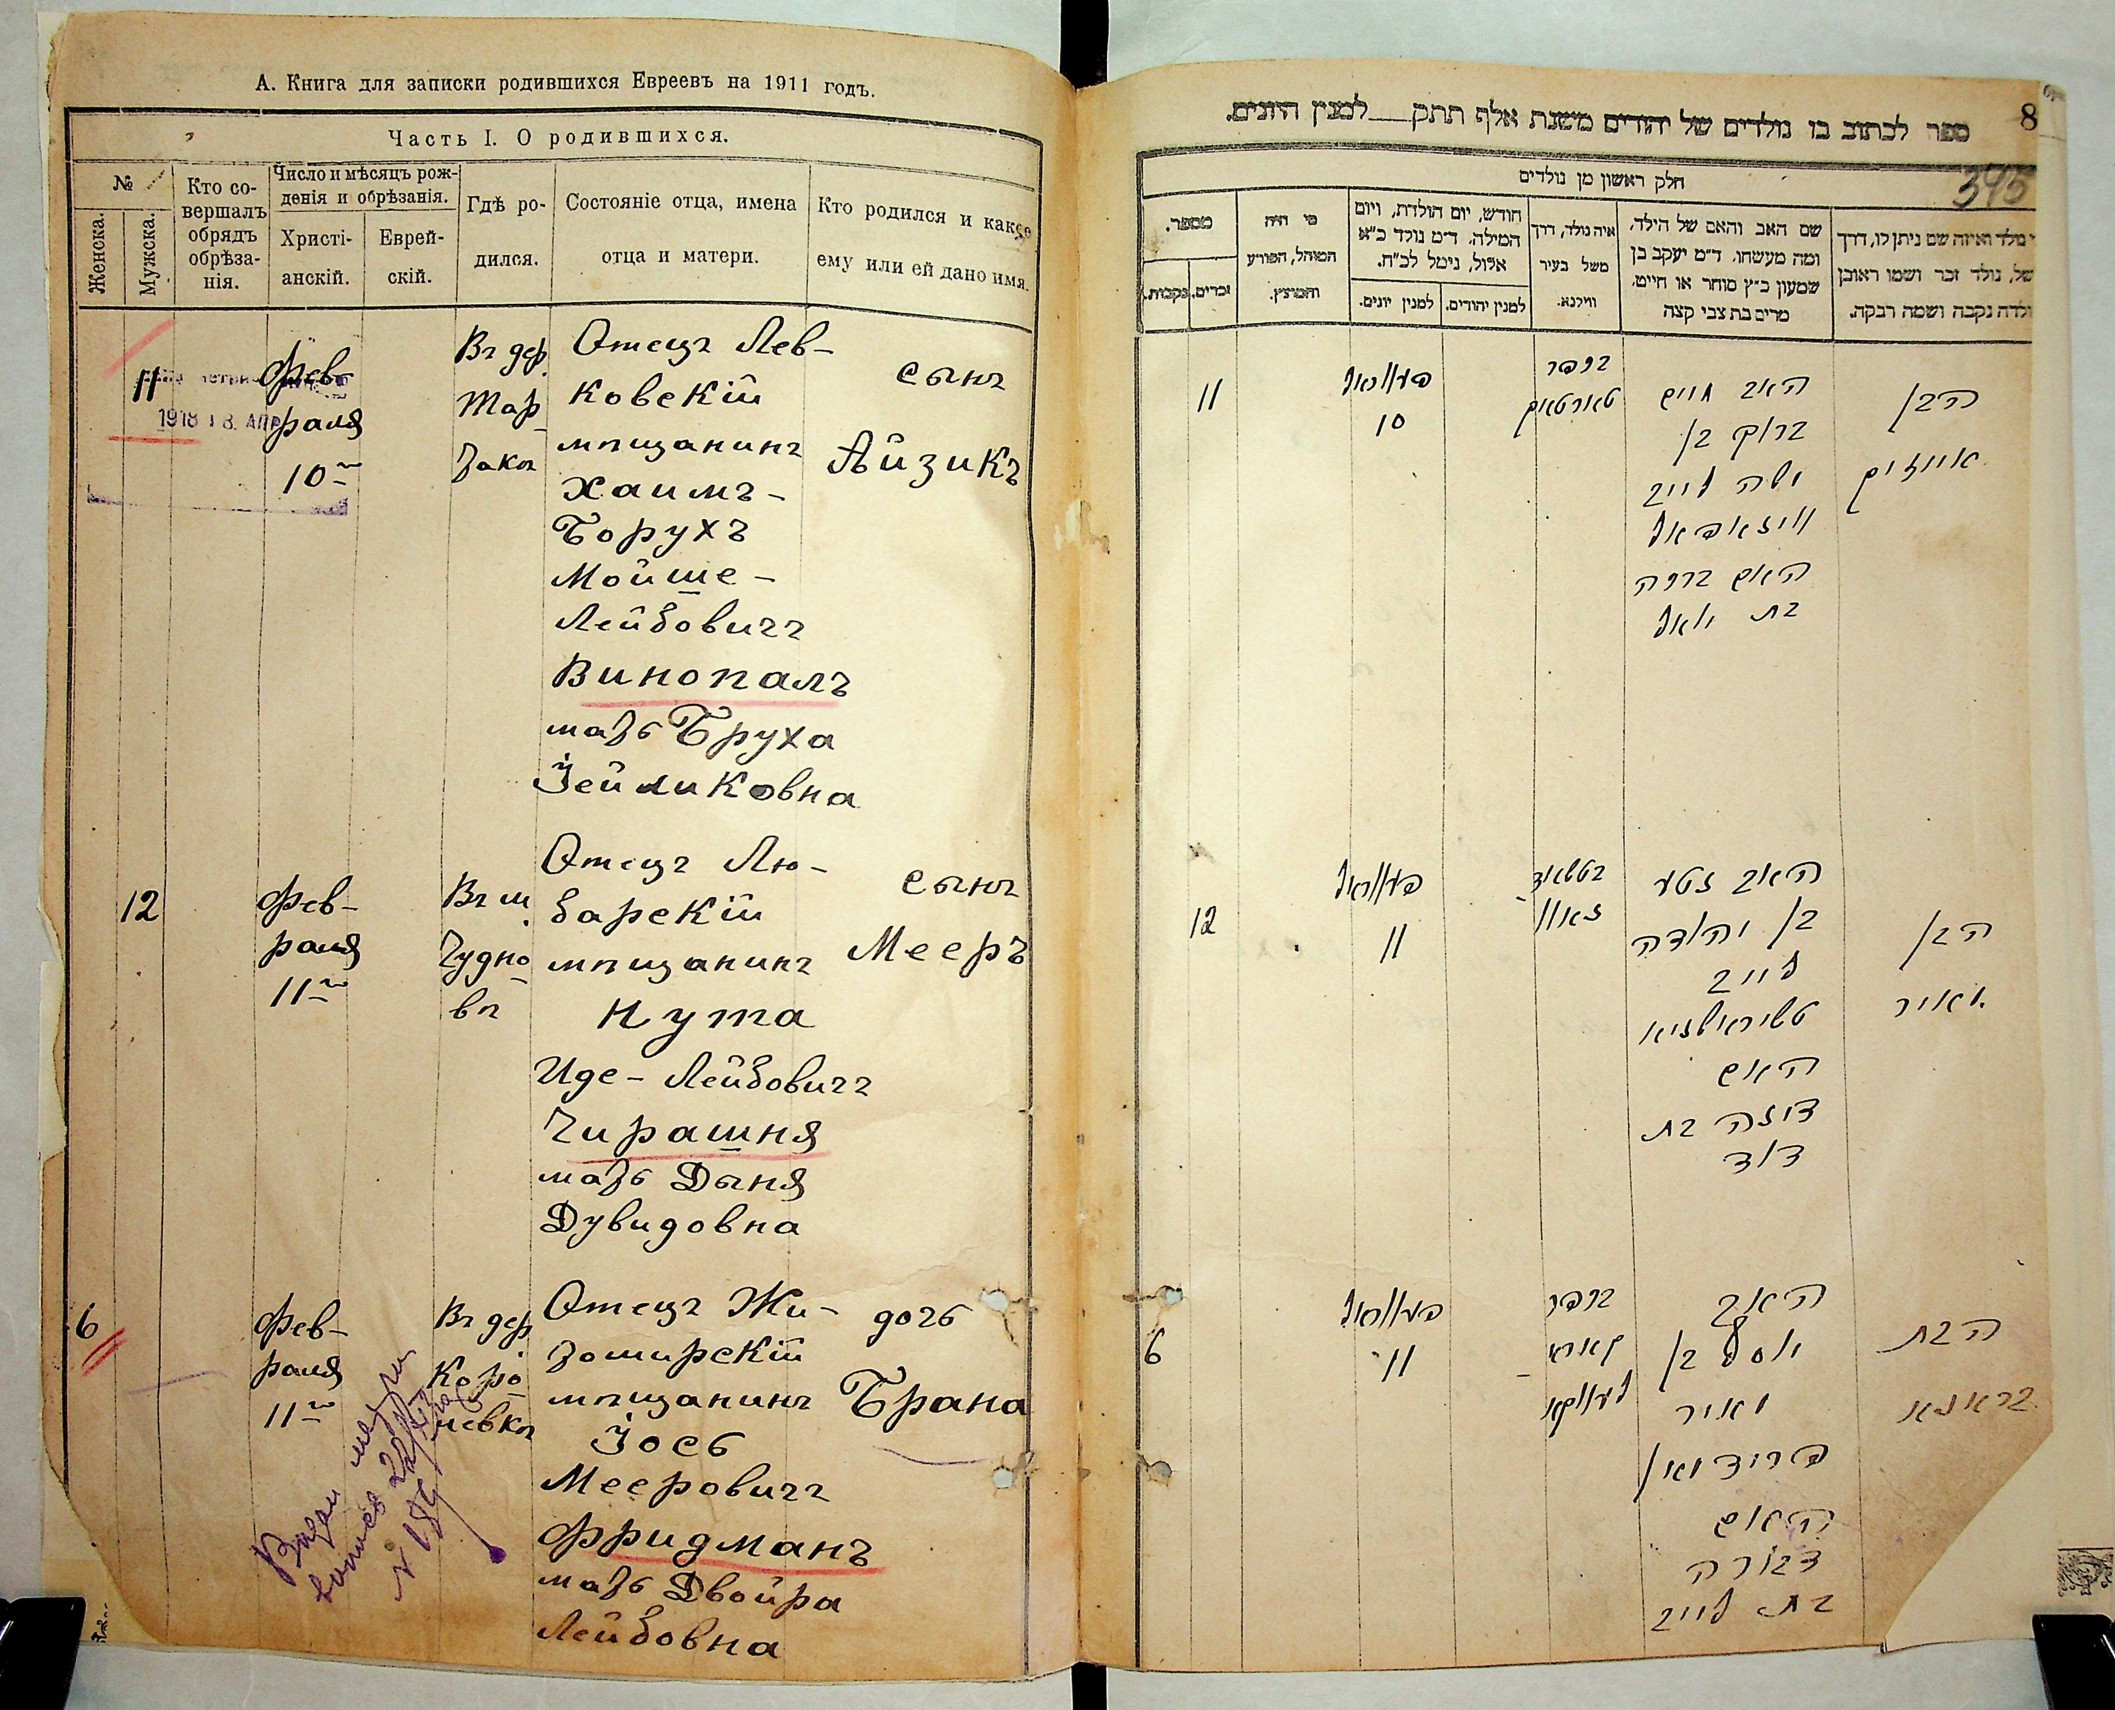 А. Книга для записки родившихся Евреевъ на 1911 годъ.
Часть I. О родившихся.
№
Женска.
Мужска.
Кто со-
вершалъ
обрядъ
обрѣза-
нія.
Число и мѣсяцъ рож-
денія и обрѣзанія.
Христі-
анскій.
Еврей-
скій.
Гдѣ ро-
дился.
Состояніе отца, имена
отца и матери.
Кто родился и какое
ему или ей дано имя.
11
Фев-
раля
10
1918
Въ дер.
Отецъ Лев-
ковскій
мѣщанинъ
Хаимъ-
Борухъ
Мойше-
Лейбовичъ
Винопалъ
мать Бруха
Зейликовна
сынъ
Айзикъ
12
Фев-
раля
11
Въ м.
Чудно-
вѣ
Отецъ Лю-
барскій
мѣщанинъ
Нута
Иде-Лейбовичъ
Чирашня
мать Дыня
Дувидовна
сынъ
Мееръ
6
Фев-
раля
11
Въ дер.
Отецъ Жи-
томирскій
мѣщанинъ
Іось
Мееровичъ
Фридманъ
мать Двойра
Лейбовна
дочь
Брана
8
ספר לכתוב בו נולדים של יהודים משנת אלף תתק___למנין היונים.
345
חלק ראשון מן נולדים
מספר.
זכרים.
נקבות.
מי היה
המוהל, הפורע
והמוצץ.
חודש, יום הולדת, ויום
המילה. ד״מ נולד כ״א
אלול, נימל לכ״ח.
למנין יהודים.
למנין יונים.
איה נולד, דרך
משל בעיר
ווילנא.
שם האב והאם של הילד,
ומה מעשהו. ד״מ יעקב בן
שמעון כ״ץ סוחר או חייט,
מרים בת צבי קצה
נולד ואיזה שם ניתן לו, דרך
של, נולד זכר ושמו ראובן
ולדה נקבה ושמה רבקה.
11
10
האב חיים
ברוך בן
משה לייב
האם ברכה
הבן
אייזיק
12
11
האב נטע
בן יהודה
לייב
האם
דינה בת
דוד
הבן
מאיר
6
11
האב
יוסף בן
מאיר
פרידמאן
האם
דבורה
בת לייב
הבת
בראנא